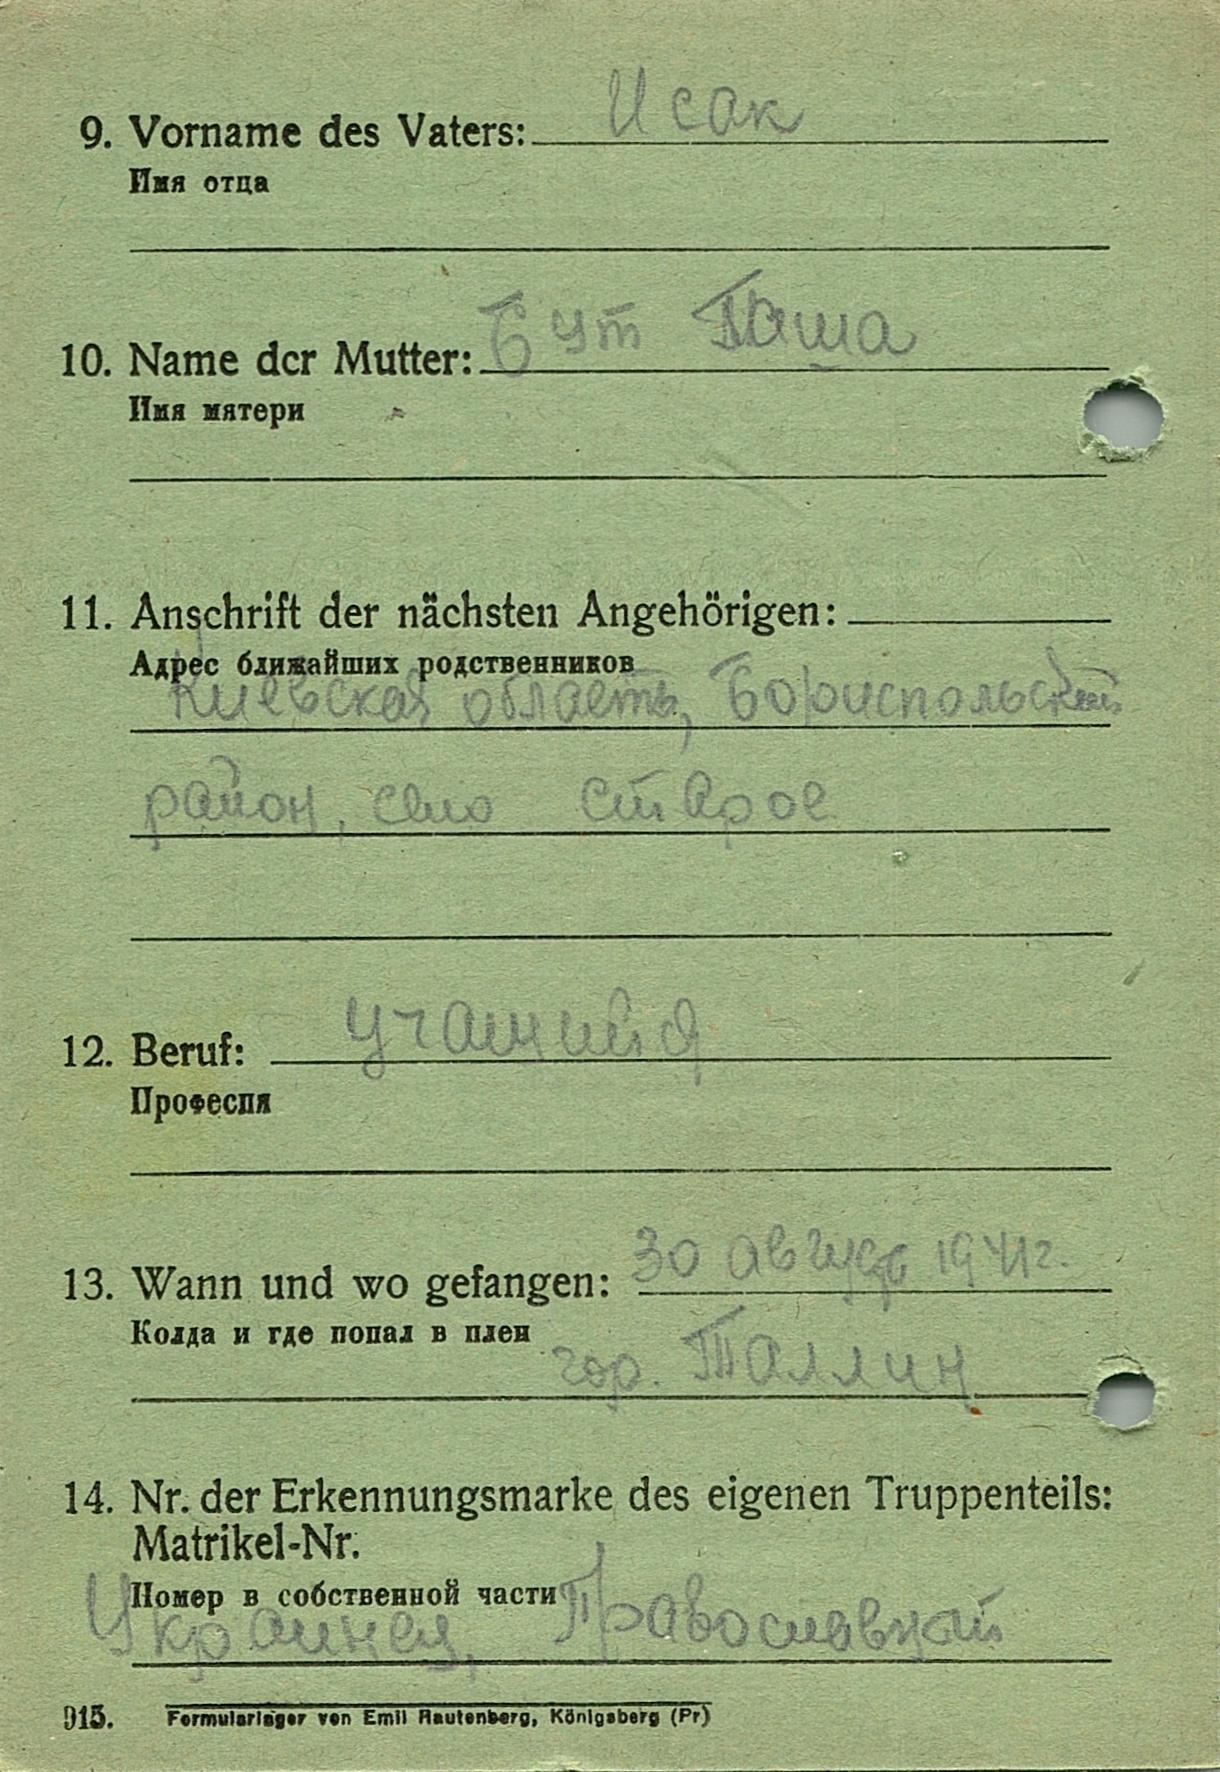 9. Vorname des Vaters: Исак
Имя отца
10. Name dcr Mutter: Бут Паша
Имя мятери
11. Anschrift der nächsten Angehörigen:
Адрес ближайших родственников
Киевская область, Бориспольский
район, село Старое
12. Beruf: учащийся
Професпя
13. Wann und wo gefangen: 30 август 1941г.
Колда и где попал в плен
гор. Таллин
14. Nr. der Erkennungsmarke des eigenen Truppenteils:
Matrikel-Nr.
Помер в собственной части
Украинец, Православный
915. Formularlager von Emil Rautenberg, Königsberg (Pr)